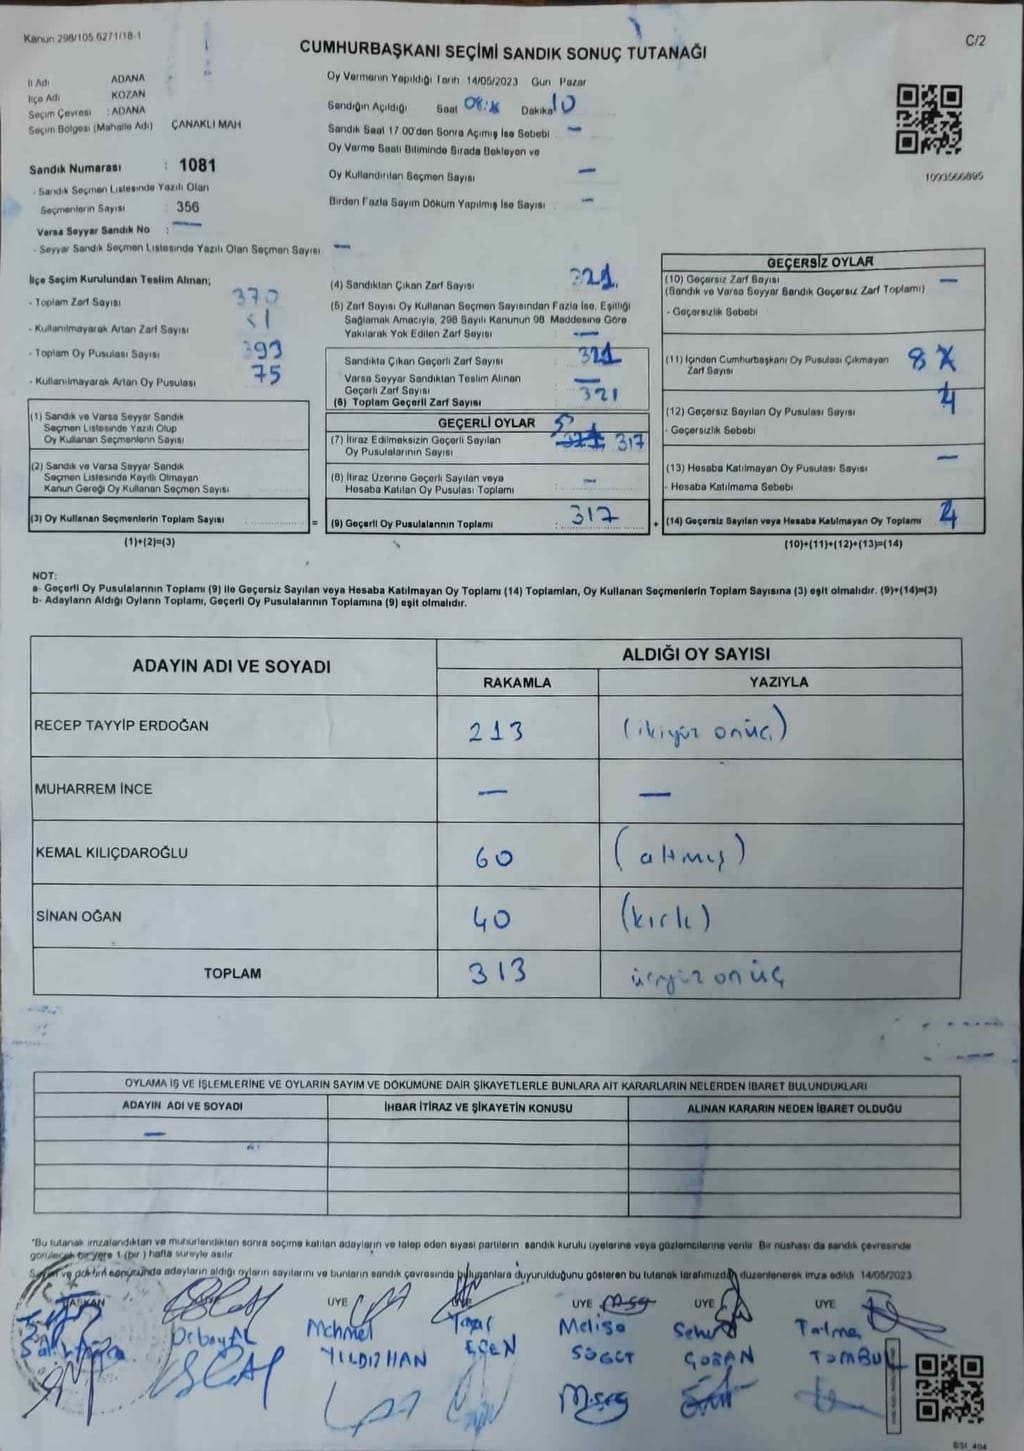 Kanun 298/105 6271/18-1
C/2
CUMHURBAŞKANI SEÇİMİ SANDIK SONUÇ TUTANAĞI
İl Adı ADANA
İlçe Adı KOZAN
Seçim Çevresi : ADANA
Seçim Bölgesi (Mahalle Adı) ÇANAKLI MAH
Sandık Numarası : 1081
- Sandık Seçmen Listesinde Yazılı Olan
Seçmenlerin Sayısı : 356
Varsa Seyyar Sandık No : —
- Seyyar Sandık Seçmen Listesinde Yazılı Olan Seçmen Sayısı —
Oy Vermenin Yapıldığı Tarih 14/05/2023 Gün Pazar
Sandığın Açıldığı Saat Dakika 10
Sandık Saat 17.00'den Sonra Açılmış İse Sebebi —
Oy Verme Saati Bitiminde Sırada Bekleyen ve
Oy Kullandırılan Seçmen Sayısı —
Birden Fazla Sayım Döküm Yapılmış İse Sayısı —
1093566895
İlçe Seçim Kurulundan Teslim Alınan;
- Toplam Zarf Sayısı 370
- Kullanılmayarak Artan Zarf Sayısı
- Toplam Oy Pusulası Sayısı 393
- Kullanılmayarak Artan Oy Pusulası 75
(1) Sandık ve Varsa Seyyar Sandık
Seçmen Listesinde Yazılı Olup
Oy Kullanan Seçmenlerin Sayısı
(2) Sandık ve Varsa Seyyar Sandık
Seçmen Listesinde Kayıtlı Olmayan
Kanun Gereği Oy Kullanan Seçmen Sayısı
(3) Oy Kullanan Seçmenlerin Toplam Sayısı =
(1)+(2)=(3)
(4) Sandıktan Çıkan Zarf Sayısı 321
(5) Zarf Sayısı Oy Kullanan Seçmen Sayısından Fazla İse, Eşitliği
Sağlamak Amacıyla, 298 Sayılı Kanunun 98. Maddesine Göre
Yakılarak Yok Edilen Zarf Sayısı —
Sandıkta Çıkan Geçerli Zarf Sayısı 321
Varsa Seyyar Sandıktan Teslim Alınan
Geçerli Zarf Sayısı —
(6) Toplam Geçerli Zarf Sayısı 321
GEÇERLİ OYLAR
(7) İtiraz Edilmeksizin Geçerli Sayılan
Oy Pusulalarının Sayısı 317
(8) İtiraz Üzerine Geçerli Sayılan veya
Hesaba Katılan Oy Pusulası Toplamı —
(9) Geçerli Oy Pusulalarının Toplamı 317 +
GEÇERSİZ OYLAR
(10) Geçersiz Zarf Sayısı —
(Sandık ve Varsa Seyyar Sandık Geçersiz Zarf Toplamı)
- Geçersizlik Sebebi
(11) İçinden Cumhurbaşkanı Oy Pusulası Çıkmayan
Zarf Sayısı
(12) Geçersiz Sayılan Oy Pusulası Sayısı 4
- Geçersizlik Sebebi
(13) Hesaba Katılmayan Oy Pusulası Sayısı —
- Hesaba Katılmama Sebebi
(14) Geçersiz Sayılan veya Hesaba Katılmayan Oy Toplamı 4
(10)+(11)+(12)+(13)=(14)
NOT:
a- Geçerli Oy Pusulalarının Toplamı (9) ile Geçersiz Sayılan veya Hesaba Katılmayan Oy Toplamı (14) Toplamları, Oy Kullanan Seçmenlerin Toplam Sayısına (3) eşit olmalıdır. (9)+(14)=(3)
b- Adayların Aldığı Oyların Toplamı, Geçerli Oy Pusulalarının Toplamına (9) eşit olmalıdır.
ADAYIN ADI VE SOYADI ALDIĞI OY SAYISI
RAKAMLA YAZIYLA
RECEP TAYYİP ERDOĞAN 213 (ikiyüz onüç)
MUHARREM İNCE — —
KEMAL KILIÇDAROĞLU 60 (altmış)
SİNAN OĞAN 40 (kırk)
TOPLAM 313 üçyüz onüç
OYLAMA İŞ VE İŞLEMLERİNE VE OYLARIN SAYIM VE DÖKÜMÜNE DAİR ŞİKAYETLERLE BUNLARA AİT KARARLARIN NELERDEN İBARET BULUNDUKLARI
ADAYIN ADI VE SOYADI İHBAR İTİRAZ VE ŞİKAYETİN KONUSU ALINAN KARARIN NEDEN İBARET OLDUĞU
—
"Bu tutanak imzalandıktan ve mühürlendikten sonra seçime katılan adayların ve talep eden siyasi partilerin sandık kurulu üyelerine veya gözlemcilerine verilir. Bir nüshası da sandık çevresinde
görülecek bir yere 1 (bir ) hafta süreyle asılır
Sayım ve döküm sonucunda adayların aldığı oyların sayılarını ve bunların sandık çevresinde bulunanlara duyurulduğunu gösteren bu tutanak tarafımızdan düzenlenerek imza edildi 14/05/2023
BAŞKAN ÜYE ÜYE ÜYE ÜYE
Orbay AL Mehmet Yaşar Melisa Fatma
YILDIZHAN EŞEN SÖĞÜT ÇOBAN TOMBUL